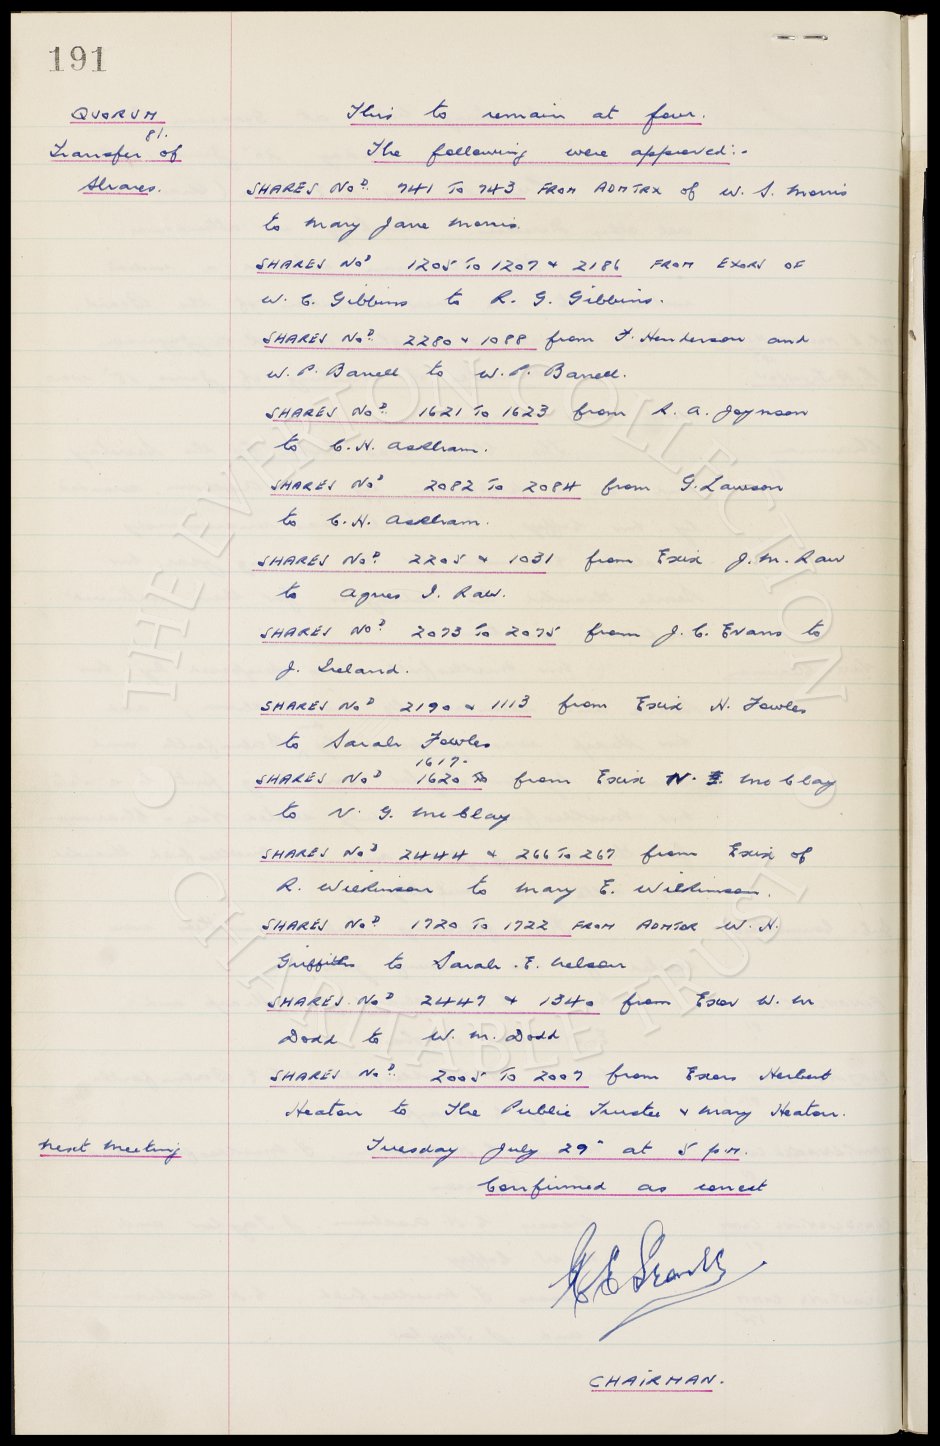 191
QUORUM This to remain at four.
81.
Transfer of The following were approved:-
Shares. SHARES NOD. 741 TO 743 FROM ADMTRX of W. S. Morris
to Mary Jane Morris.
SHARES NOD 1205 TO 1207 & 2186 FROM EXORS OF
W. C. Gibbins to R. G. Gibbins.
SHARES NOD. 2280 & 1088 from F. Henderson and
W. P. Barrell to W. P. Barrell.
SHARES NOD. 1621 TO 1623 from R. A. Joynson
to C. H. Askham.
SHARES NOD 2082 TO 2084 from G. Lawson
to C. H. Askham.
SHARES NOD. 2205 & 1031 from Exix J. M. Raw
to Agnes I. Raw.
SHARES NOD. 2073 TO 2075 from J. C. Evans to
J. Ireland.
SHARES NOD 2190 & 1113 from Exix H. Fowles
to Sarah Fowles
1617.
SHARES NOD 1620 from Exix N. McClay
to N. G. McClay
SHARES NOD 2444 & 266 TO 267 from Exix of
R. Wilkinson to Mary E. Wilkinson.
SHARES NOD. 1720 TO 1722 FROM ADMTOR W. H.
Griffiths to Sarah. E. Nelson
SHARES. NOD 2447 & 1340 from Exor W. M
Dodd to W. M. Dodd
SHARES NOD. 2005 TO 2007 from Exors Herbert
Heaton to The Public Trustee & Mary Heaton.
Next Meeting Tuesday July 29" at 5 p.m.
Confirmed as correct
CHAIRMAN.
© THE EVERTON COLLECTION
© CHARITABLE TRUST